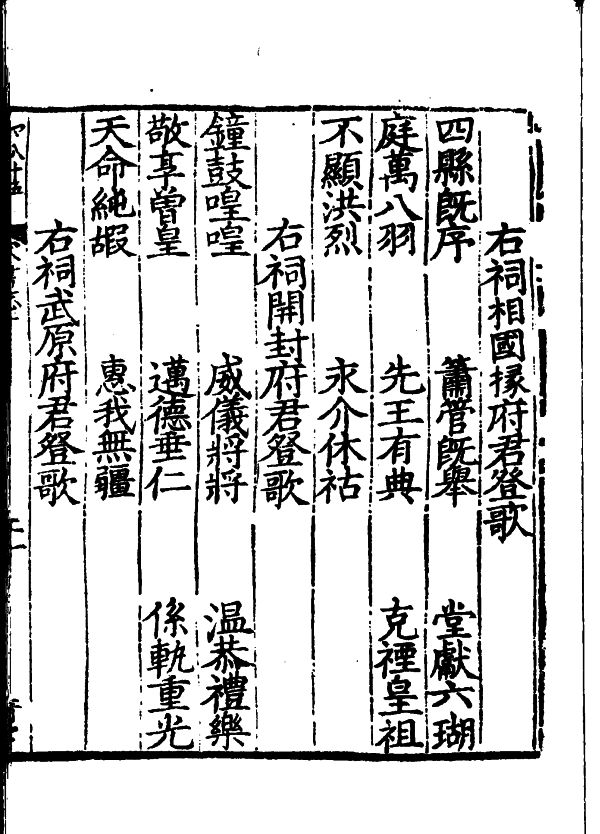 右祠相國掾府君登歌
四縣既序　簫管既舉　堂獻六瑚
庭萬八羽　先王有典　克禋皇祖
不顯洪烈　永介休祜
右祠開封府君登歌
鐘鼓喤喤　威儀將將　温恭禮樂
敬享曾皇　邁德垂仁　係軌重光
天命純嘏　惠我無疆
右祠武原府君登歌